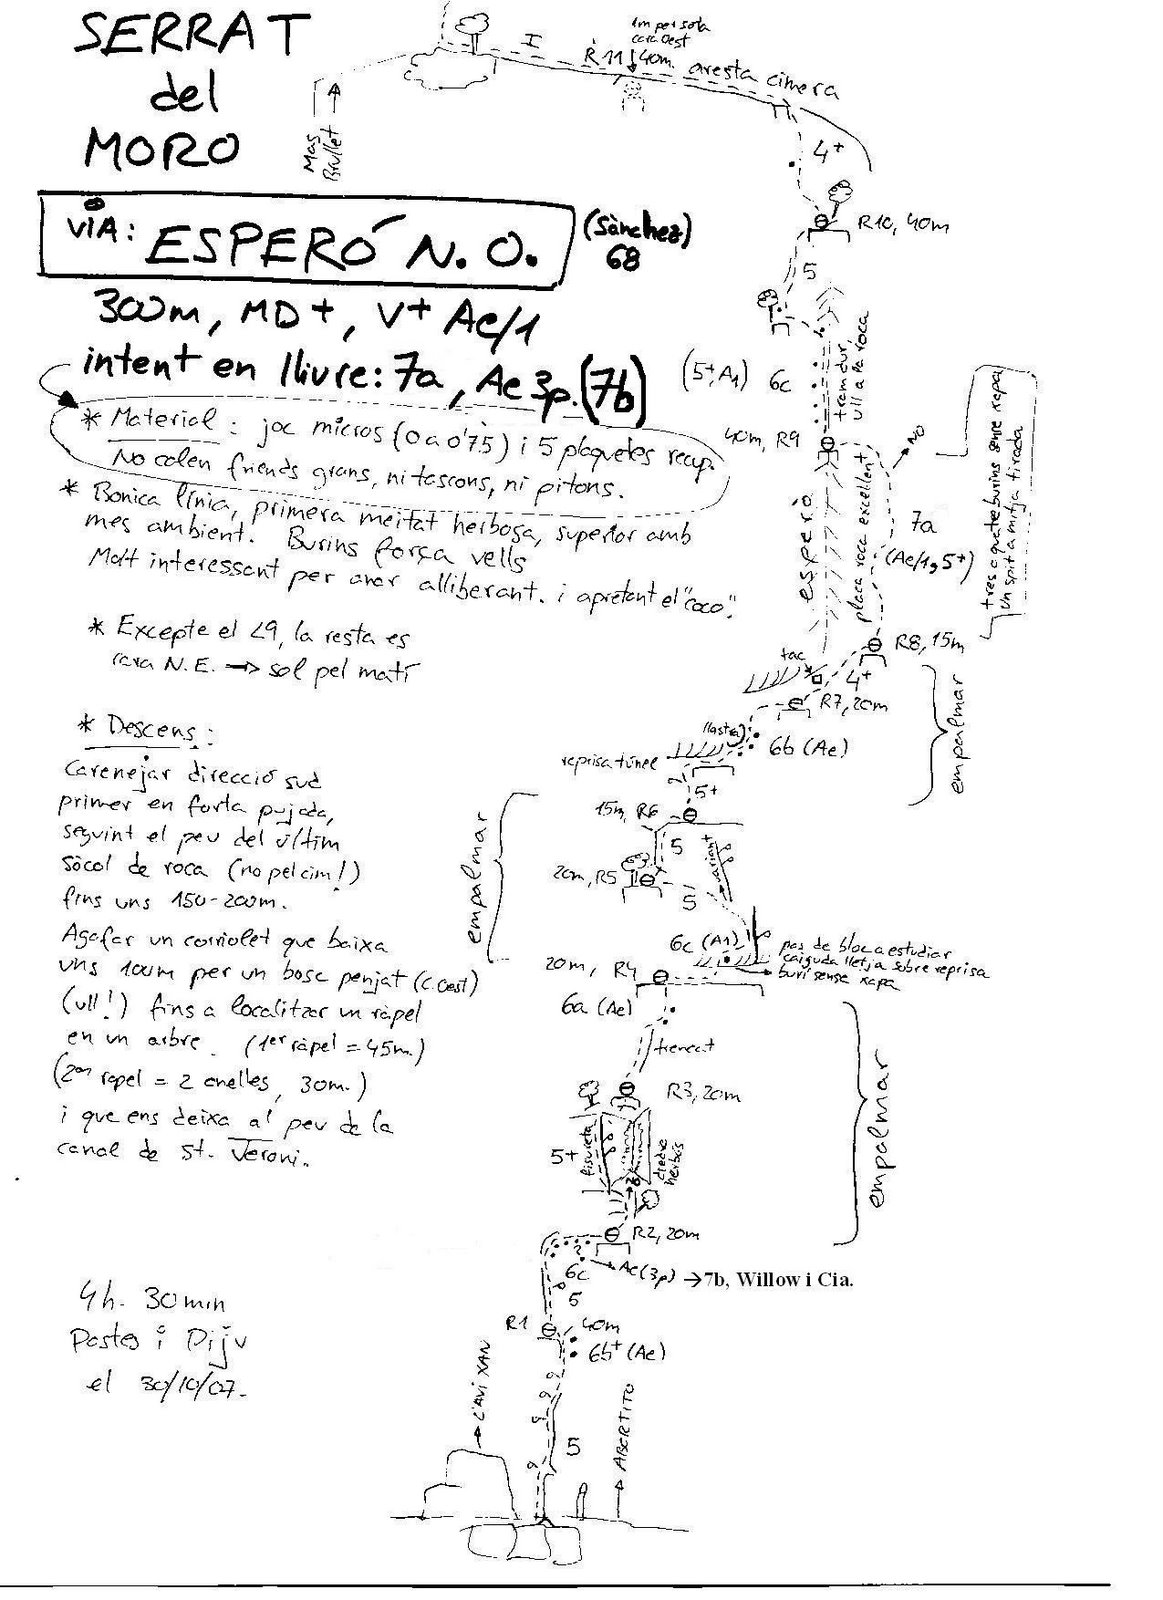 SERRAT
del
MORO
VIA: ESPERÓ N.O.
(Sànchez)
68
300m, MD+, V+ Ae/1
intent en lliure: 7a, Ae 3p. (7b)
* Material: joc micros (0 a 0'75) i 5 plaquetes recup.
No calen friends grans, ni tascons, ni pitons.
* Bonica línia, primera meitat herbosa, superior amb
mes ambient. Burins força vells
Molt interessant per anar alliberant. i apretant el "coco".
* Excepte el L9, la resta es
cara N.E. → sol pel matí
* Descens:
Carenejar direcció sud
primer en forta pujada,
seguint el peu del últim
sòcol de roca (no pel cim!)
fins uns 150-200m.
Agafar un corriolet que baixa
uns 100m per un bosc penjat (c. Oest)
(ull!) fins a localitzar un ràpel
en un arbre. (1er ràpel = 45m.)
(2on rapel = 2 anelles, 30m.)
i que ens deixa al peu de la
canal de St. Jeroni.
4h. 30min
Pastes i Pijy
el 30/10/07.
Mas
Brullet
I
1m per sota
cara Oest
R11 40m. aresta cimera
4+
R10, 40m
5
(5+, A1) 6c
tram dur,
ull a la roca
40m, R9
NO
esperó
placa roca excellent
7a
(Ae/1, 5+)
tres o quatre burins sense xapa
Un spit a mitja tirada
R8, 15m
tac
4+
R7, 20m
llastra
6b (Ae)
reprisa túnel
empalmar
5+
15m, R6
5
variant
20m, R5
5
empalmar
6c (A1)
pas de bloc a estudiar
caiguda lletja sobre reprisa
burí sense xapa
20m, R4
6a (Ae)
trencat
R3, 20m
5+
fisureta
diedre
herbós
empalmar
R2, 20m
Ae (3p) →7b, Willow i Cia.
6c
5
R1
40m
6b+ (Ae)
L'AVI XAN
5
ABERTITO